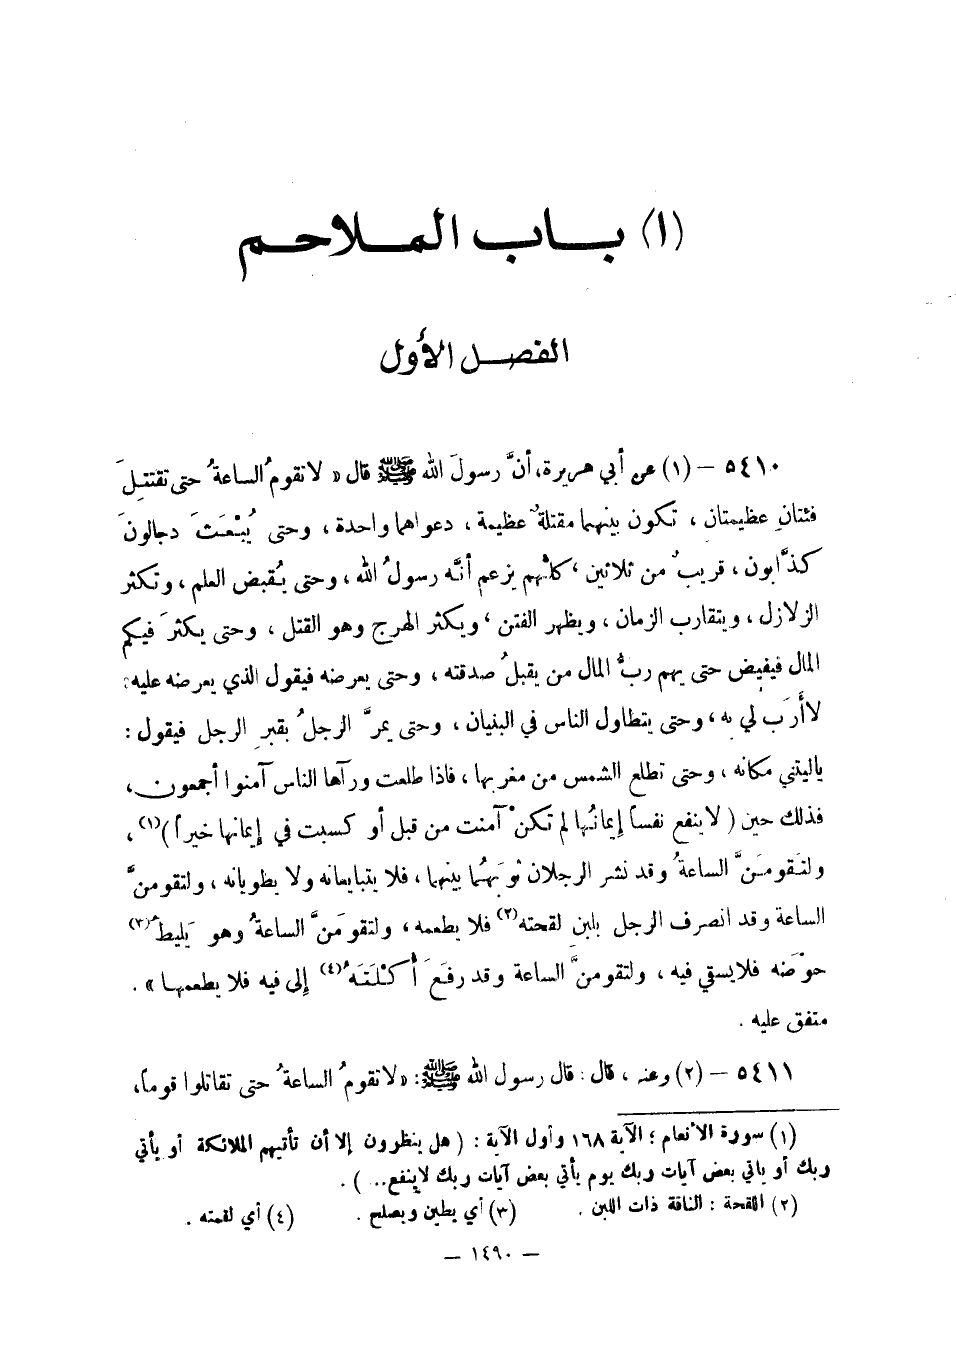 (١) باب الملاحم
الفصل الأول
٥٤١٠ – (١) عن أبي هريرة، أنَّ رسولَ الله ﷺ قال « لا تقومُ الساعةُ حتى تقتتلَ
فئتانِ عظيمتان ، تكون بينهما مقتلةٌ عظيمة ، دعواهما واحدة ، وحتى يُبْعَثَ دجالونَ
كذَّابون ، قريبٌ من ثلاثين ، كلُّهم يزعم أنَّه رسولُ الله ، وحتى يُقبض العلم ، وتكثر
الزلازل ، ويتقارب الزمان ، ويظهر الفتن ، ويكثر الهرج وهو القتل ، وحتى يكثرَ فيكم
المال فيفيض حتى يهم ربُّ المال من يقبلُ صدقته ، وحتى يعرضه فيقول الذي يعرضه عليه :
لا أَرَب لي به ، وحتى يتطاول الناس في البنيان ، وحتى يمرَّ الرجلُ بقبرِ الرجل فيقول :
ياليتني مكانه ، وحتى تطلع الشمس من مغربها ، فاذا طلعت ورآها الناس آمنوا أجمعون ،
فذلك حين ( لا ينفع نفساً إيمانُها لم تكنْ آمنت من قبل أو كسبت في إيمانها خيراً )(١) ،
ولتقومَنَّ الساعةُ وقد نشر الرجلان ثوبَهُما بينهما ، فلا يتبايعانه ولا يطويانه ، ولتقومنَّ
الساعة وقد انصرف الرجل بلبنِ لقحته(٢) فلا يطعمه ، ولتقومَنَّ الساعةُ وهو يَليطُ(٣)
حوْضَه فلا يسقي فيه ، ولتقومنَّ الساعة وقد رفَعَ أُكْلَتَهُ(٤) إلى فيه فلا يطعمها » .
متفق عليه .
٥٤١١ – (٢) وعنه ، قال : قال رسول الله ﷺ : « لا تقومُ الساعةُ حتى تقاتلوا قوماً،
(١) سورة الأنعام ؛ الآية ١٦٨ وأول الآية : ( هل ينظرون إلا أن تأتيهم الملائكة أو يأتي
ربك أو يأتي بعض آيات ربك يوم يأتي بعض آيات ربك لا ينفع .. ) .
(٢) اللقحة : الناقة ذات اللبن . (٣) أي يطين ويصلح . (٤) أي لقمته .
– ١٤٩٠ –